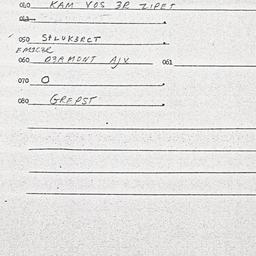 010 KAM VOS 3R ZIPET
013
050 StLUK3RCT
EM3C3R
060 D3AMONT AJX 061
070 O
080 GREPST